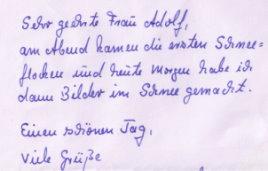 Sehr geehrte Frau Adolf,
am Abend kamen die ersten Schnee=
flocken und heute Morgen habe ich
dann Bilder im Schnee gemacht.
Einen schönen Tag,
Viele Grüße